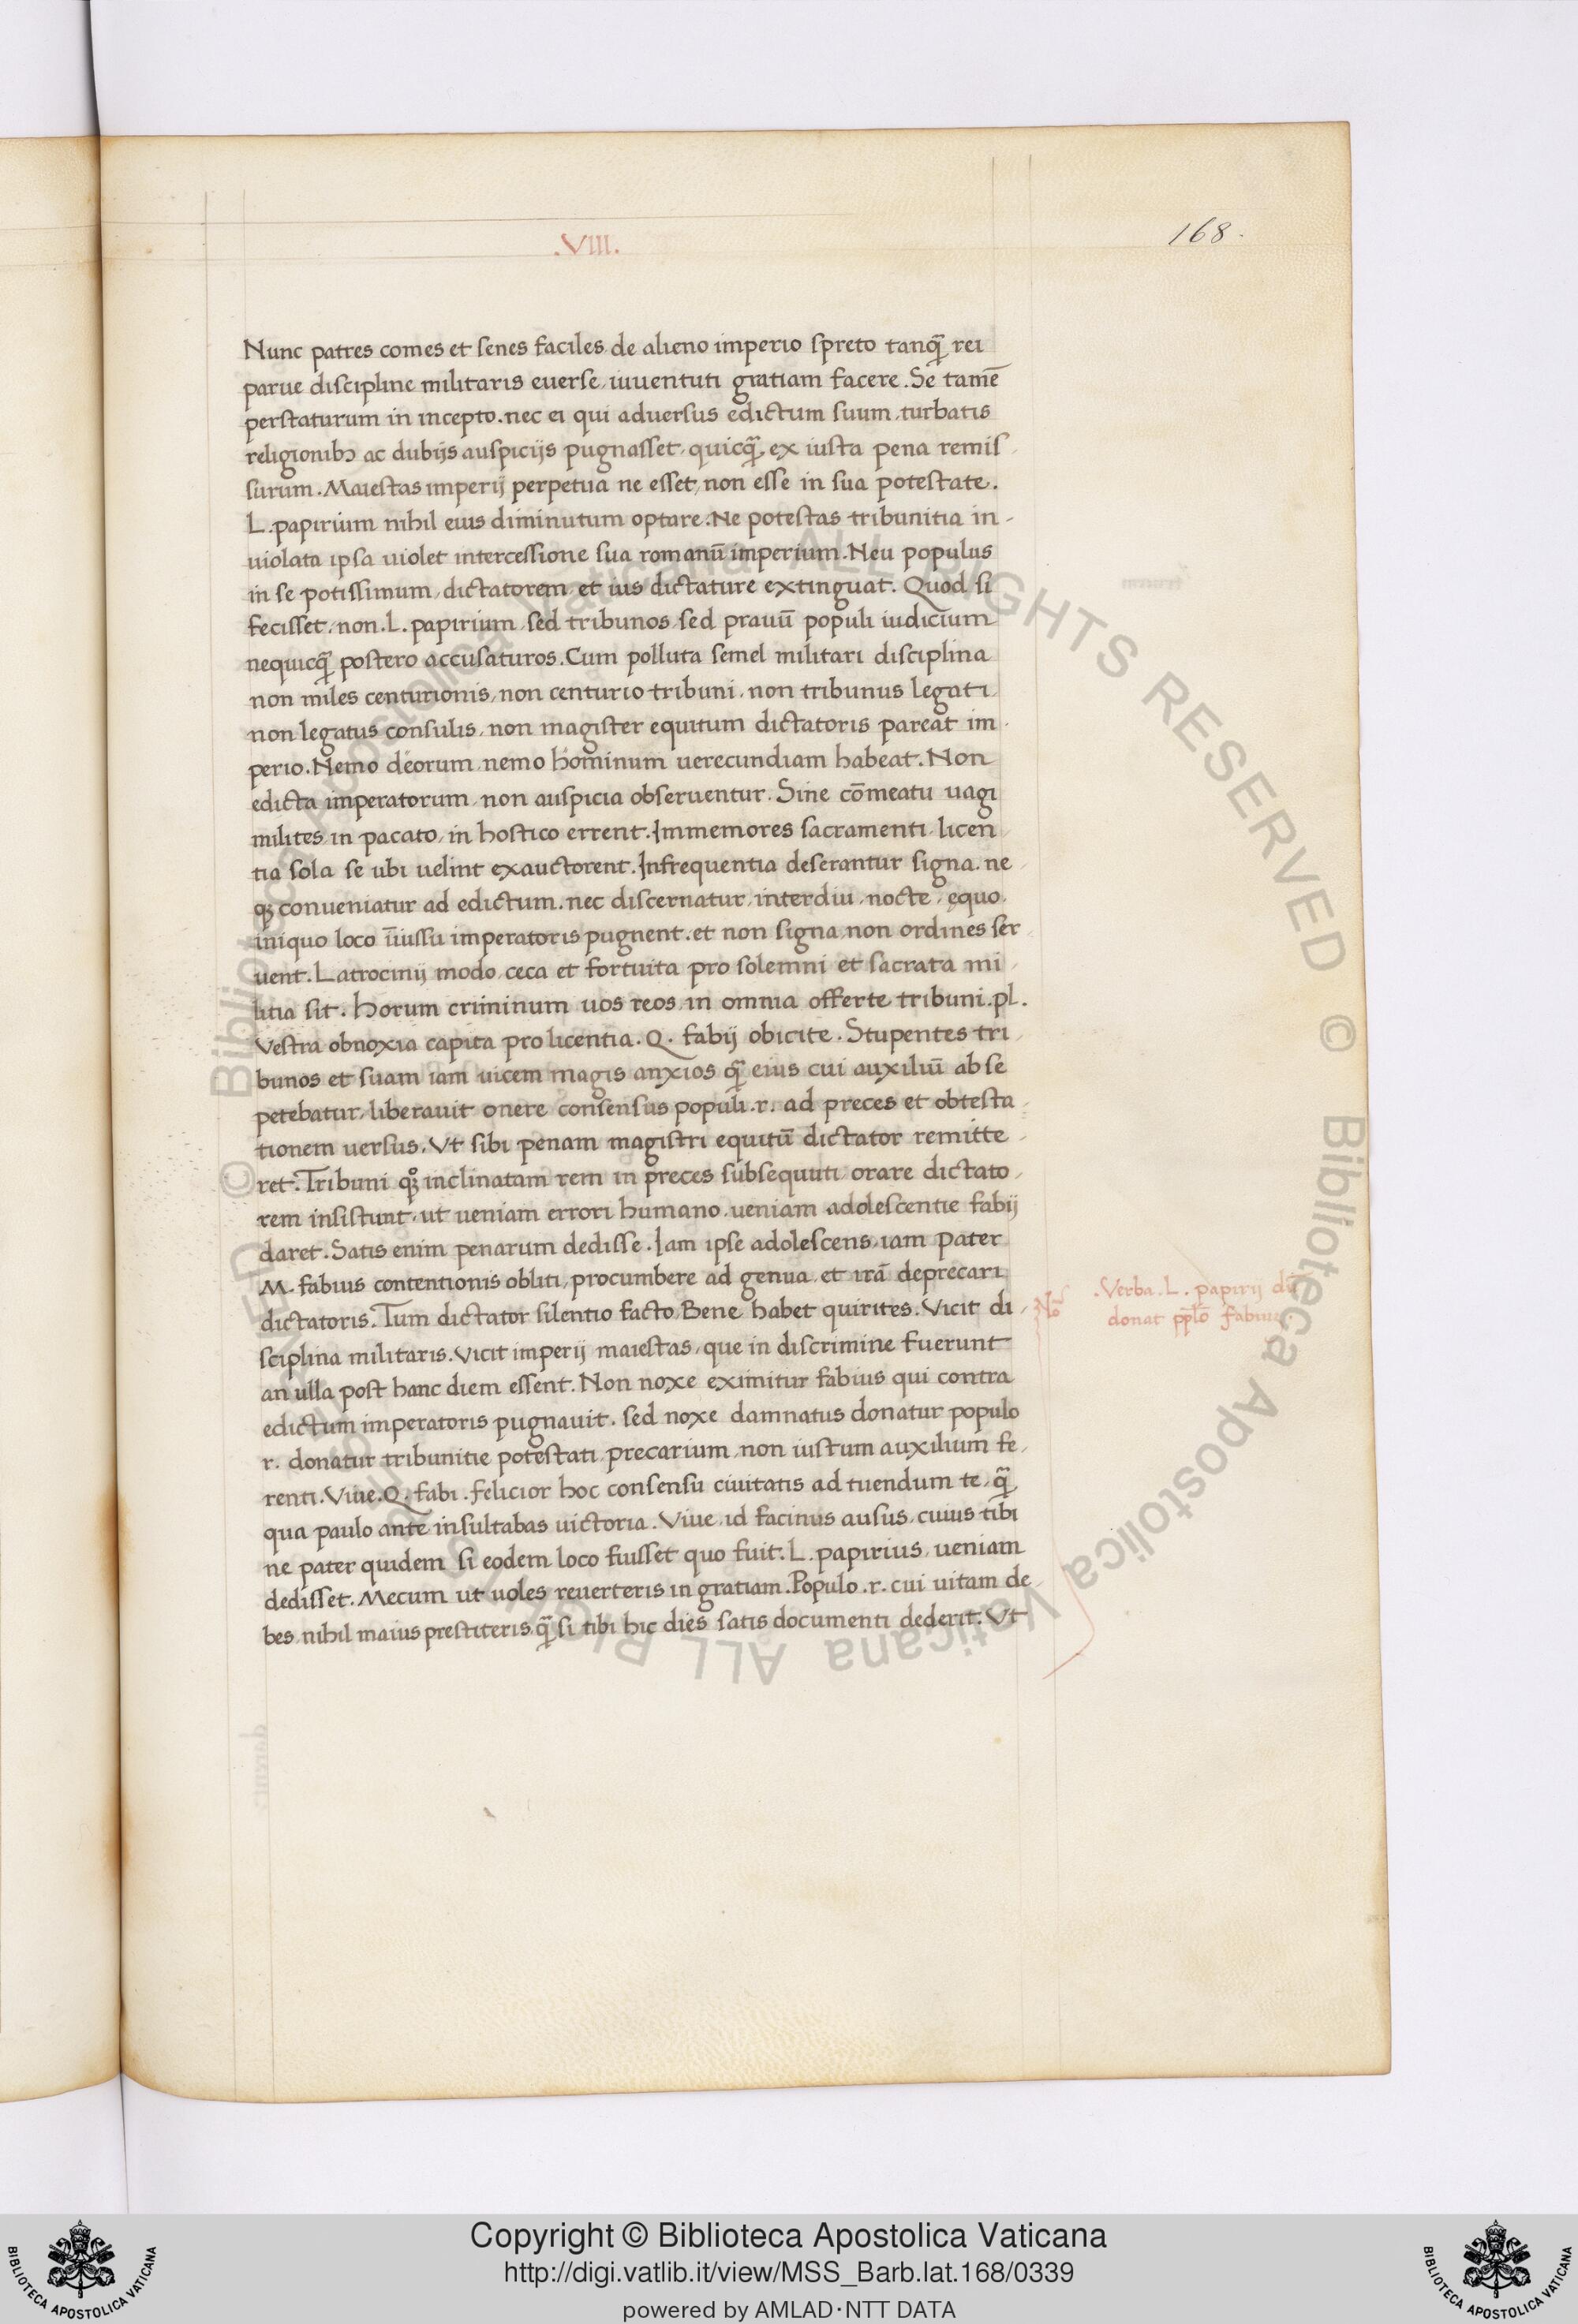 .VIII.
168.
Nunc patres comes et senes faciles de alieno imperio spreto tanq̃ rei
parue discipline militaris euerse, iuuentuti gratiam facere. Se tamē
perstaturum in incepto. nec ei qui aduersus edictum suum, turbatis
religionibꝫ ac dubijs auspicijs pugnasset, quicq̃, ex iusta pena remis
surum. Maiestas imperij perpetua ne esset, non esse in sua potestate.
L. papirium nihil eius diminutum optare. Ne potestas tribunitia in-
uiolata ipsa uiolet intercessione sua romanū imperium. Neu populus
in se potissimum, dictatorem, et ius dictature extinguat. Quod si
fecisset, non. L. papirium, sed tribunos, sed prauū populi iudicium
nequicq̃ postero accusaturos. Cum polluta semel militari disciplina
non miles centurionis, non centurio tribuni, non tribunus legati,
non legatus consulis, non magister equitum dictatoris pareat im-
perio. Nemo deorum, nemo hominum uerecundiam habeat. Non
edicta imperatorum, non auspicia obseruentur. Sine cōmeatu uagi
milites, in pacato, in hostico errent. Immemores sacramenti, licen-
tia sola se ubi uelint exauctorent. Infrequentia deserantur signa. ne
qꝫ conueniatur ad edictum. nec discernatur, interdiu, nocte, ęquo,
iniquo loco iniussu imperatoris pugnent. et non signa, non ordines ser
uent. Latrocinij modo, ceca et fortuita pro solemni et sacrata mi-
litia sit. Horum criminum uos reos, in omnia offerte tribuni. pl.
Vestra obnoxia capita pro licentia. Q. fabij obicite. Stupentes tri-
bunos et suam iam uicem magis anxios q̃ eius cui auxiliū ab se
petebatur, liberauit onere consensus populi. r. ad preces et obtesta-
tionem uersus. Vt sibi penam magistri equitū dictator remitte-
ret. Tribuni qꝫ inclinatam rem in preces subsequuti orare dictato-
rem insistunt, ut ueniam errori humano, ueniam adolescentie fabij
daret. Satis enim penarum dedisse. Iam ipse adolescens, iam pater
M. fabius contentionis obliti, procumbere ad genua, et irā deprecari
dictatoris. Tum dictator silentio facto, Bene habet quirites. Vicit di-
sciplina militaris. Vicit imperij maiestas, que in discrimine fuerunt
an ulla post hanc diem essent. Non noxe eximitur fabius qui contra
edictum imperatoris pugnauit. sed noxe damnatus donatur populo
r. donatur tribunitie potestati, precarium, non iustum auxilium fe-
renti. Viue. Q. fabi. felicior hoc consensu ciuitatis ad tuendum te, q̃
qua paulo ante insultabas uictoria. Viue, id facinus ausus, cuius tibi
ne pater quidem si eodem loco fuisset quo fuit. L. papirius, ueniam
dedisset. Mecum ut uoles reuerteris in gratiam. Populo. r. cui uitam de-
bes, nihil maius prestiteris, q̃ si tibi hic dies satis documenti dederit. Vt
.Verba. L. papirij dū
donat pplō fabius.
© Biblioteca Apostolica Vaticana ALL RIGHTS RESERVED
© Biblioteca Apostolica Vaticana ALL
Copyright © Biblioteca Apostolica Vaticana
http://digi.vatlib.it/view/MSS_Barb.lat.168/0339
powered by AMLAD·NTT DATA
BIBLIOTECA APOSTOLICA VATICANA
BIBLIOTECA APOSTOLICA VATICANA